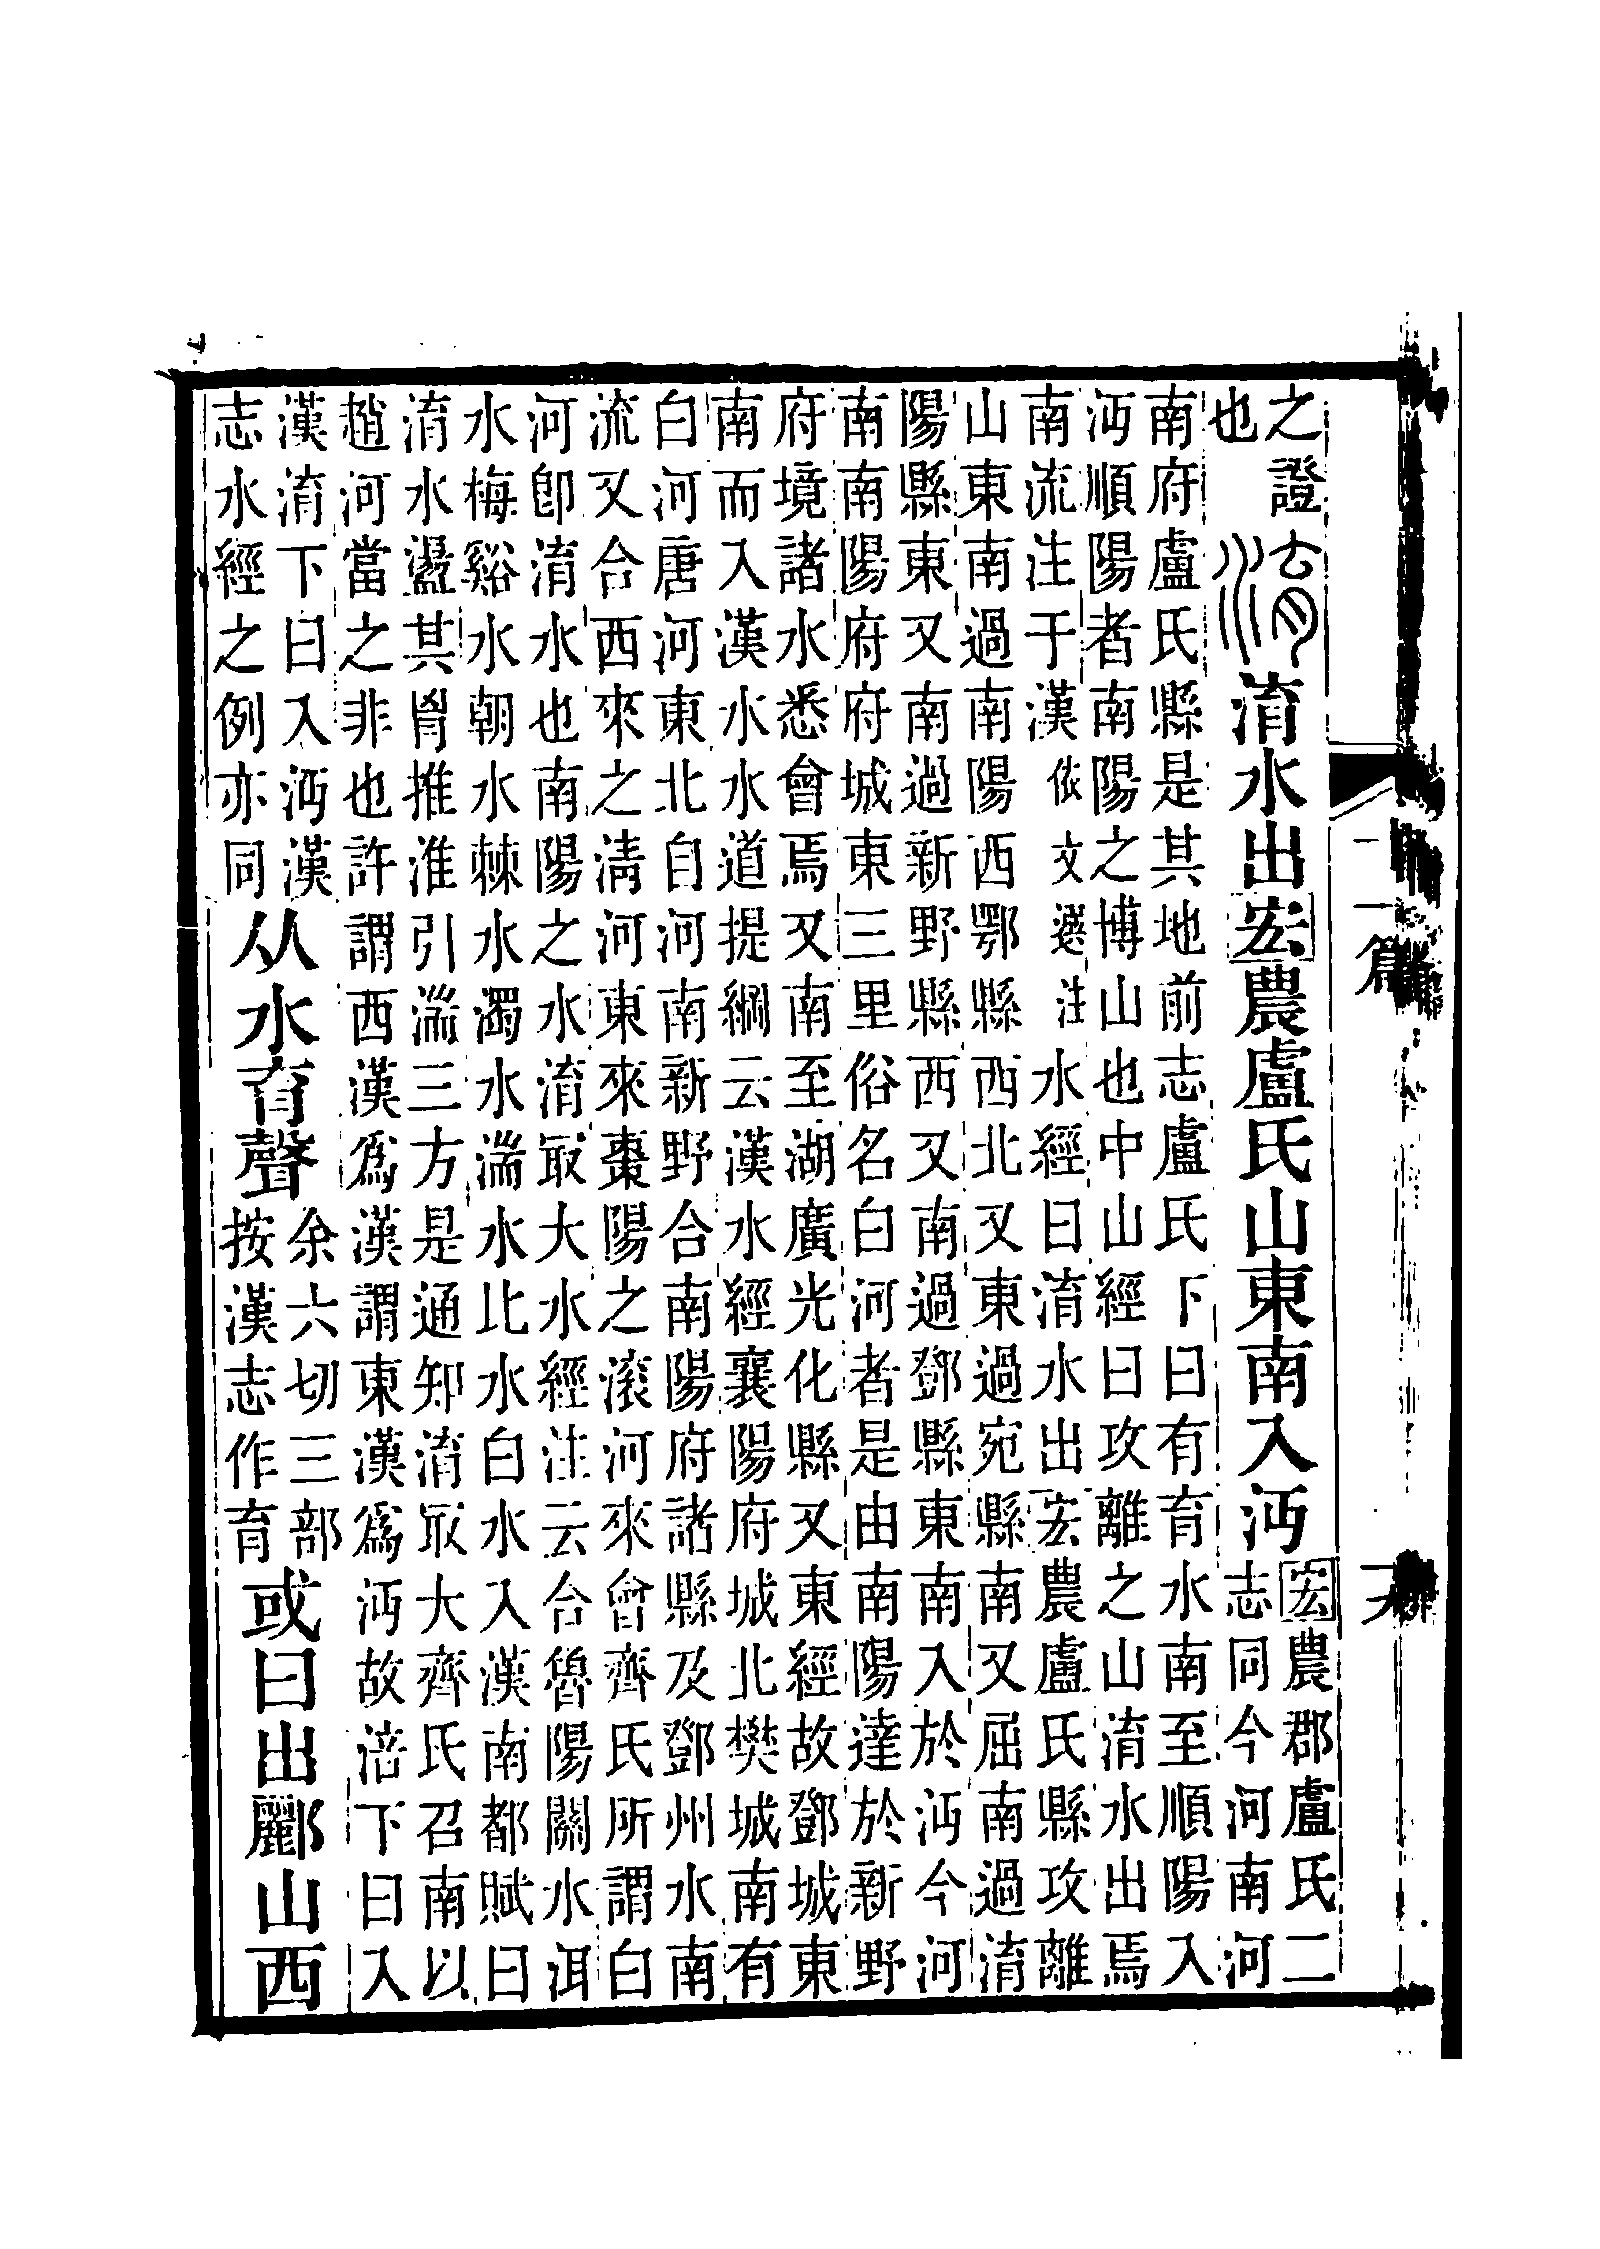 之證
也
淯水出宏農盧氏山東南入沔
宏農郡盧氏二
志同今河南河
南府盧氏縣是其地前志盧氏下曰有育水南至順陽入
沔順陽者南陽之博山也中山經曰攻離之山淯水出焉
南流注于漢依文選注水經曰淯水出宏農盧氏縣攻離
山東南過南陽西鄂縣西北又東過宛縣南又屈南過淯
陽縣東又南過新野縣西又南過鄧縣東南入於沔今河
南南陽府府城東三里俗名白河者是由南陽達於新野
府境諸水悉會焉又南至湖廣光化縣又東經故鄧城東
南而入漢水水道提綱云漢水經襄陽府城北樊城南有
白河唐河東北自河南新野合南陽府諸縣及鄧州水南
流又合西來之淸河東來棗陽之滚河來會齊氏所謂白
河卽淯水也南陽之水淯冣大水經注云合魯陽關水洱
水梅谿水朝水棘水濁水湍水比水白水入漢南都賦曰
淯水盪其胷推淮引湍三方是通知淯冣大齊氏召南以
趙河當之非也許謂西漢爲漢謂東漢爲沔故涪下曰入
漢淯下曰入沔漢
志水經之例亦同
从水育聲
余六切三部
按漢志作育
或曰出酈山西